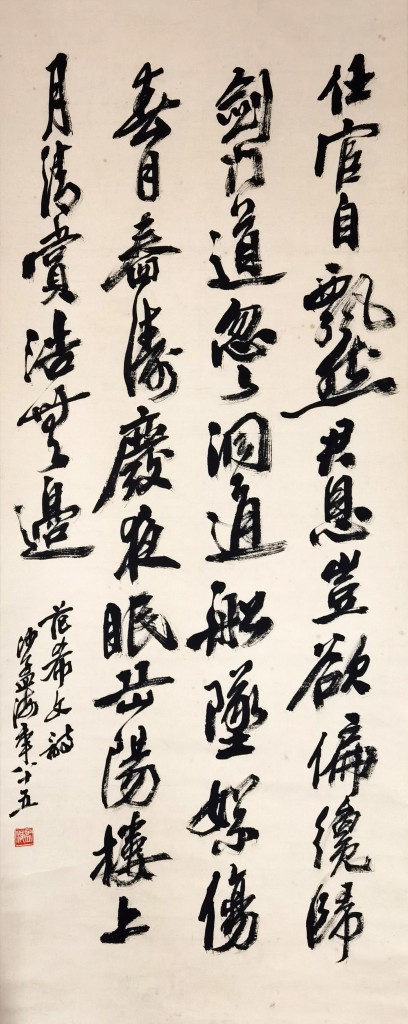 仕宦自飄然君恩豈欲偏纔歸
劍門道忽上洞庭船墜絮傷
春目春濤廢夜眠岳陽樓上
月清賞浩無邊
范希文詩
沙孟海年八十五